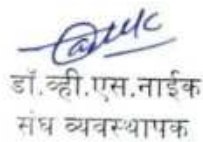 डॉ.व्ही.एस.नाईक
संघ व्यवस्थापक